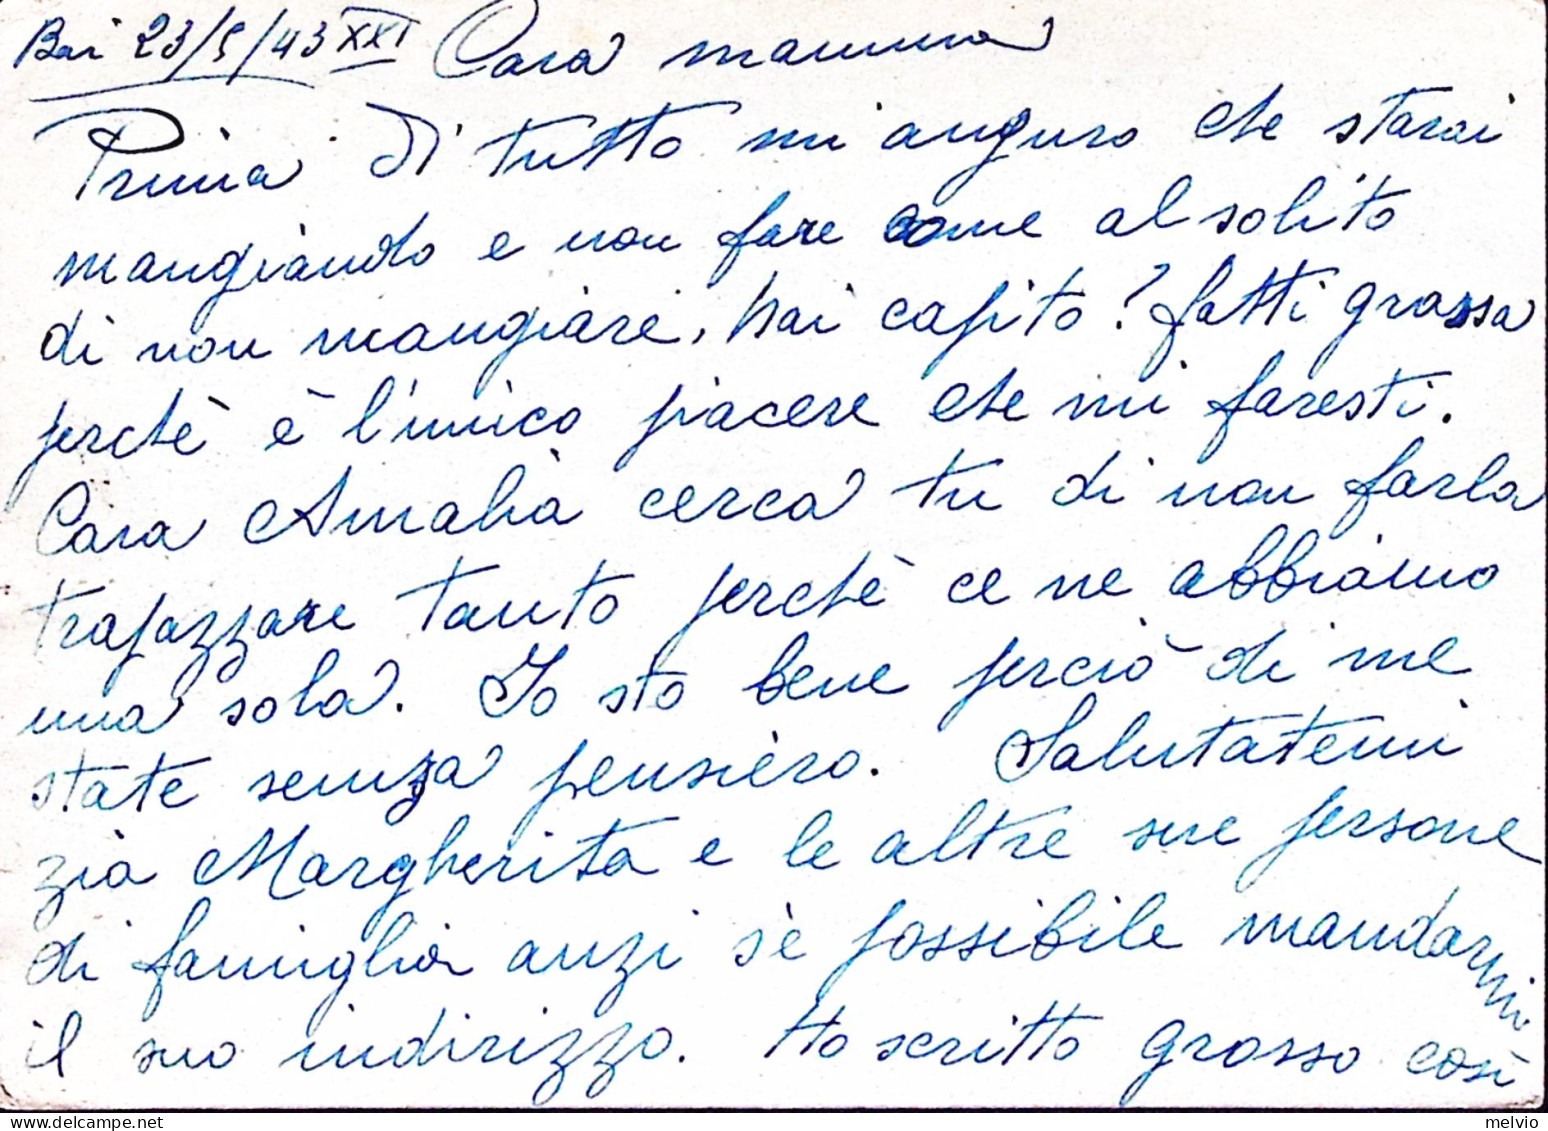 Bari 23/5/43 XXI Cara mamma
Prima di tutto mi auguro che starai
mangiando e non fare come al solito
di non mangiare, hai capito? fatti grassa
perchè è l'unico piacere che mi faresti.
Cara Amalia cerca tu di non farla
trapazzare tanto perchè ce ne abbiamo
una sola. Io sto bene perciò di me
state senza pensiero. Salutatemi
zia Margherita e le altre sue persone
di famiglia anzi s'è possibile mandarmi
il suo indirizzo. Ho scritto grosso così
melvio